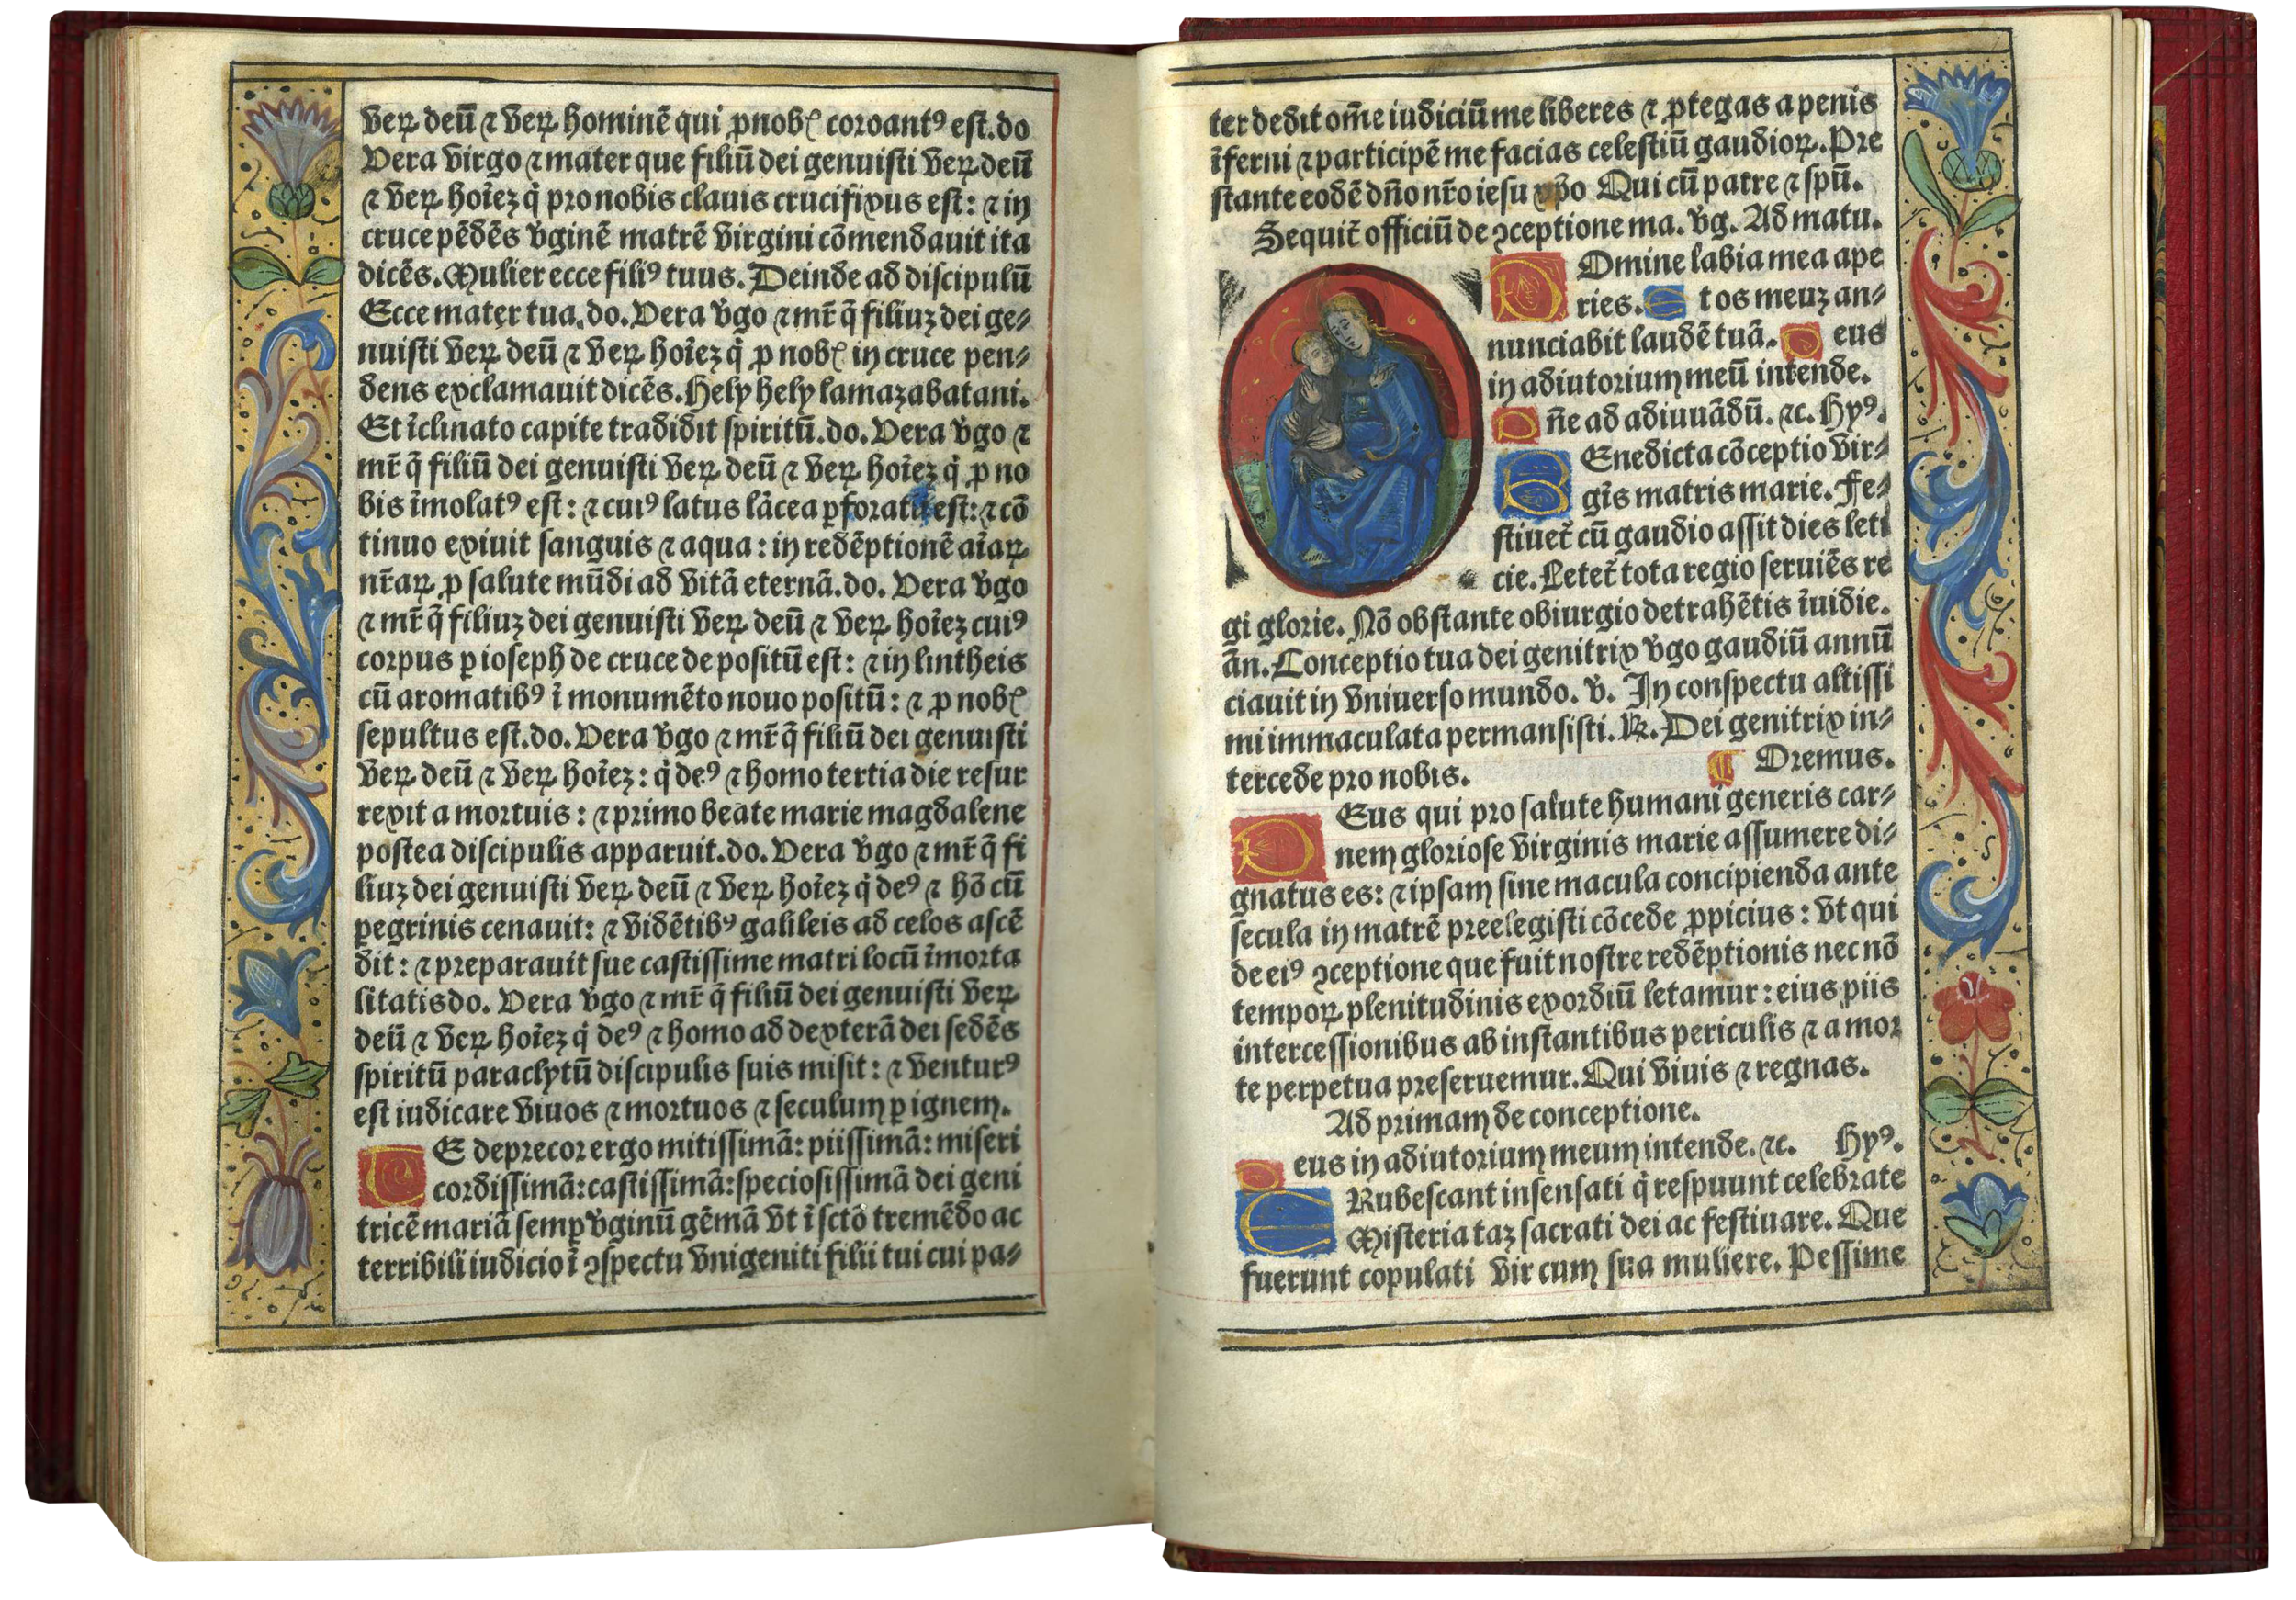 veꝝ deū ⁊ veꝝ hominē qui ꝓnob coroantꝰ est.do
Vera virgo ⁊ mater que filiū dei genuisti veꝝ deū
⁊ veꝝ hoīez q̇ pro nobis clauis crucifixus est: ⁊ in
cruce pēdēs v̓ginē matrē virgini cōmendauit ita
dicēs. Mulier ecce filiꝰ tuus. Deinde ad discipulū
Ecce mater tua.do. Vera v̓go ⁊ mr̄ q̄ filiuz dei ge⸗
nuisti veꝝ deū ⁊ veꝝ hoīez q̇ ꝓ nob in cruce pen⸗
dens exclamauit dicēs. Hely hely lamazabatani.
Et īclinato capite tradidit spiritū.do. Vera v̓go ⁊
mr̄ q̄ filiū dei genuisti veꝝ deū ⁊ veꝝ hoīez q̇ ꝓ no
bis īmolatꝰ est: ⁊ cuiꝰ latus lācea ꝑforatū est: ⁊ cō
tinuo exiuit sanguis ⁊ aqua: in redēptionē aīaꝝ
nr̄aꝝ ꝓ salute mūdi ad vitā eternā.do. Vera v̓go
⁊ mr̄ q̄ filiuz dei genuisti veꝝ deū ⁊ veꝝ hoīez cuiꝰ
corpus ꝑ ioseph de cruce depositū est: ⁊ in lintheis
cū aromatibꝰ ī monumēto nouo positū: ⁊ ꝓ nob
sepultus est.do. Vera v̓go ⁊ mr̄ q̄ filiū dei genuisti
veꝝ deū ⁊ veꝝ hoīez: q̇ deꝰ ⁊ homo tertia die resur
rexit a mortuis: ⁊ primo beate marie magdalene
postea discipulis apparuit.do. Vera v̓go ⁊ mr̄ q̄ fi
liuz dei genuisti veꝝ deū ⁊ veꝝ hoīez q̇ deꝰ ⁊ hō cū
ꝑegrinis cenauit: ⁊ vidētibꝰ galileis ad celos ascē
dit: ⁊ preparauit sue castissime matri locū īmorta
litatis do. Vera v̓go ⁊ mr̄ q̄ filiū dei genuisti veꝝ
deū ⁊ veꝝ hoīez q̇ deꝰ ⁊ homo ad dexterā dei sedēs
spiritū paraclytū discipulis suis misit: ⁊ venturꝰ
est iudicare viuos ⁊ mortuos ⁊ seculum ꝑ ignem.
TE deprecor ergo mitissimā: piissimā: miseri
cordissimā: castissimā: speciosissimā dei geni
tricē mariā semꝑ v̓ginū gēmā vt ī sctō tremēdo ac
terribili iudicio ī ꝯspectu vnigeniti filii tui cui pa⸗
ter dedit om̄e iudiciū me liberes ⁊ ꝓtegas a penis
īferni ⁊ participē me facias celestiū gaudioꝝ. Pre
stante eodē dn̄o nr̄o iesu xp̄o Qui cū patre ⁊ spū.
Sequit̄ officiū de ꝯceptione ma. v̓g. Ad matu.
DOmine labia mea ape
ries. Et os meuz an⸗
nunciabit laudē tuā. Deus
in adiutorium meū intende.
Dn̄e ad adiuuādū. ⁊c. Hyꝰ.
BEnedicta cōceptio vir⸗
gīs matris marie. Fe⸗
stiuet̄ cū gaudio assit dies leti
cie. Letet̄ tota regio seruiēs re
gi glorie. Nō obstante obiurgio detrahētis īuidie.
ān. Conceptio tua dei genitrix v̓go gaudiū annū
ciauit in vniuerso mundo. ℣. In conspectu altissi
mi immaculata permansisti. ℞. Dei genitrix in⸗
tercede pro nobis. ¶ Oremus.
DEus qui pro salute humani generis car⸗
nem gloriose virginis marie assumere di⸗
gnatus es: ⁊ ipsam sine macula concipienda ante
secula in matrē preelegisti cōcede ꝓpicius: vt qui
de eiꝰ ꝯceptione que fuit nostre redēptionis nec nō
tempoꝝ plenitudinis exordiū letamur: eius piis
intercessionibus ab instantibus periculis ⁊ a mor
te perpetua preseruemur. Qui viuis ⁊ regnas.
Ad primam de conceptione.
Deus in adiutorium meum intende. ⁊c. Hyꝰ.
ERubescant insensati q̇ respuunt celebrate
Misteria taz sacrati dei ac festiuare. Que
fuerunt copulati vir cum sua muliere. Pessime